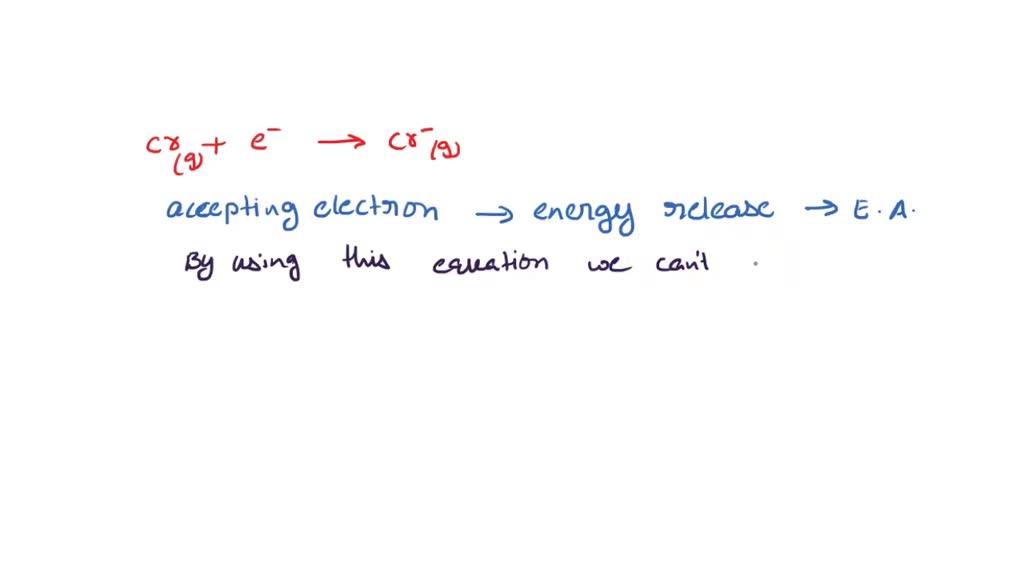 Cr(g) + e⁻ → Cr⁻(g)
accepting electron → energy release → E.A.
By using this equation we can't